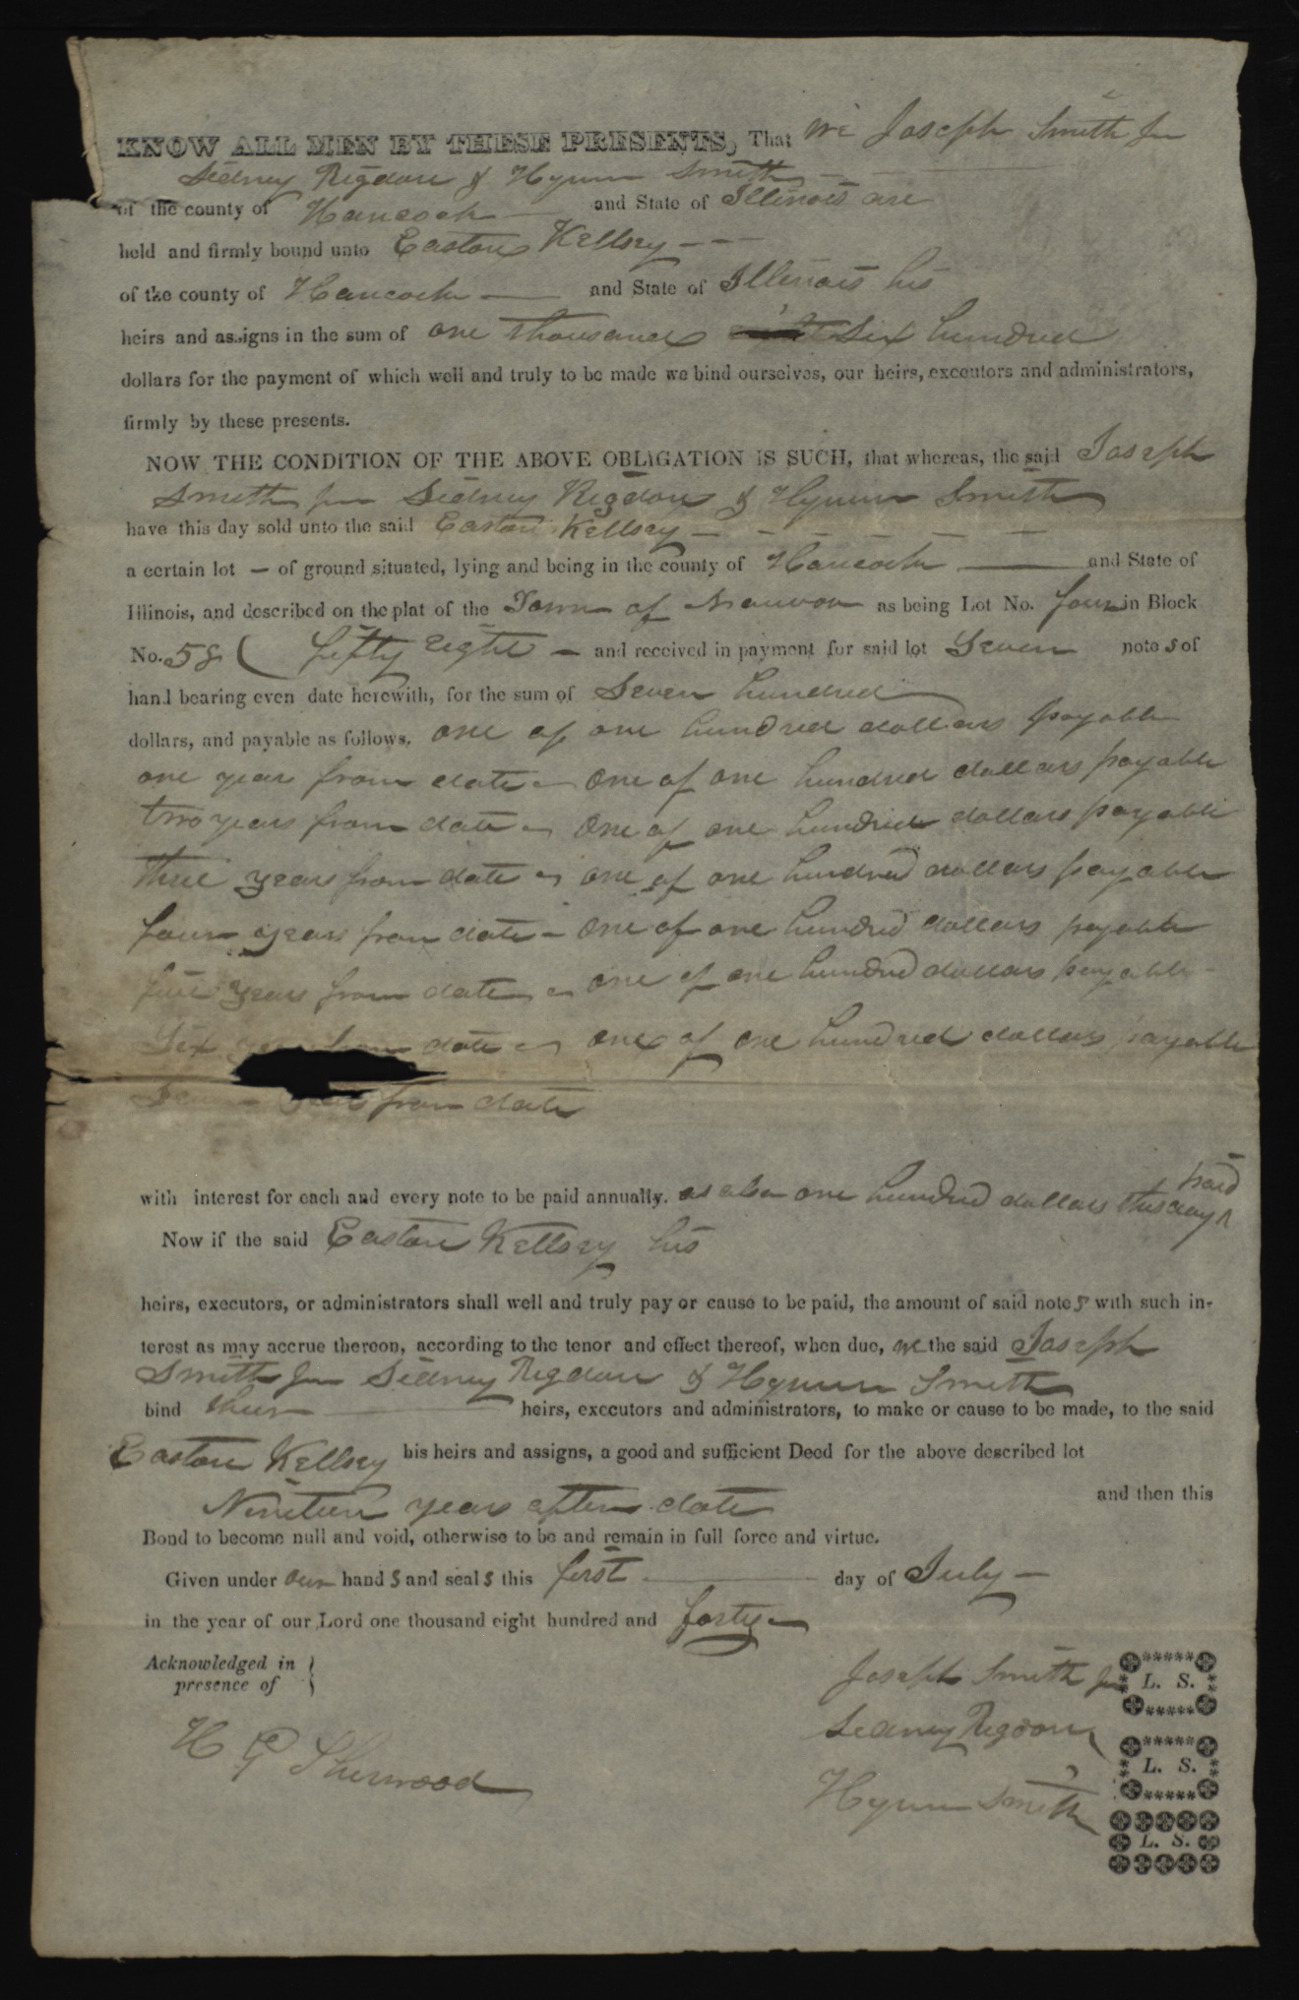 KNOW ALL MEN BY THESE PRESENTS, That we Joseph Smith Jun
Sidney Rigdon & Hyrum Smith
of the county of Hancock and State of Illinois are
held and firmly bound unto Easton Kellsey
of the county of Hancock and State of Illinois his
heirs and assigns in the sum of one thousand six hundred
dollars for the payment of which well and truly to be made we bind ourselves, our heirs, executors and administrators,
firmly by these presents.
NOW THE CONDITION OF THE ABOVE OBLIGATION IS SUCH, that whereas, the said Joseph
Smith Jun Sidney Rigdon & Hyrum Smith
have this day sold unto the said Easton Kellsey
a certain lot – of ground situated, lying and being in the county of Hancock and State of
Illinois, and described on the plat of the Town of Nauvoo as being Lot No. four in Block
No. 58 ( fifty eight – and received in payment for said lot Seven note s of
hand bearing even date herewith, for the sum of Seven hundred
dollars, and payable as follows, one of one hundred dollars payable
one year from date – one of one hundred dollars payable
two years from date – one of one hundred dollars payable
three years from date – one of one hundred dollars payable
four years from date – one of one hundred dollars payable
five years from date – one of one hundred dollars payable
Six years from date – one of one hundred dollars payable
Seven years from date
with interest for each and every note to be paid annually. as also one hundred dollars this day ^ paid
Now if the said Easton Kellsey his
heirs, executors, or administrators shall well and truly pay or cause to be paid, the amount of said note s with such in-
terest as may accrue thereon, according to the tenor and effect thereof, when due, we the said Joseph
Smith Jun Sidney Rigdon & Hyrum Smith
bind their heirs, executors and administrators, to make or cause to be made, to the said
Easton Kellsey his heirs and assigns, a good and sufficient Deed for the above described lot
Nineteen years after date and then this
Bond to become null and void, otherwise to be and remain in full force and virtue.
Given under our hand s and seal s this first day of July –
in the year of our Lord one thousand eight hundred and forty –
Acknowledged in
presence of
H G Sherwood
Joseph Smith Jun L. S.
Sidney Rigdon L. S.
Hyrum Smith L. S.